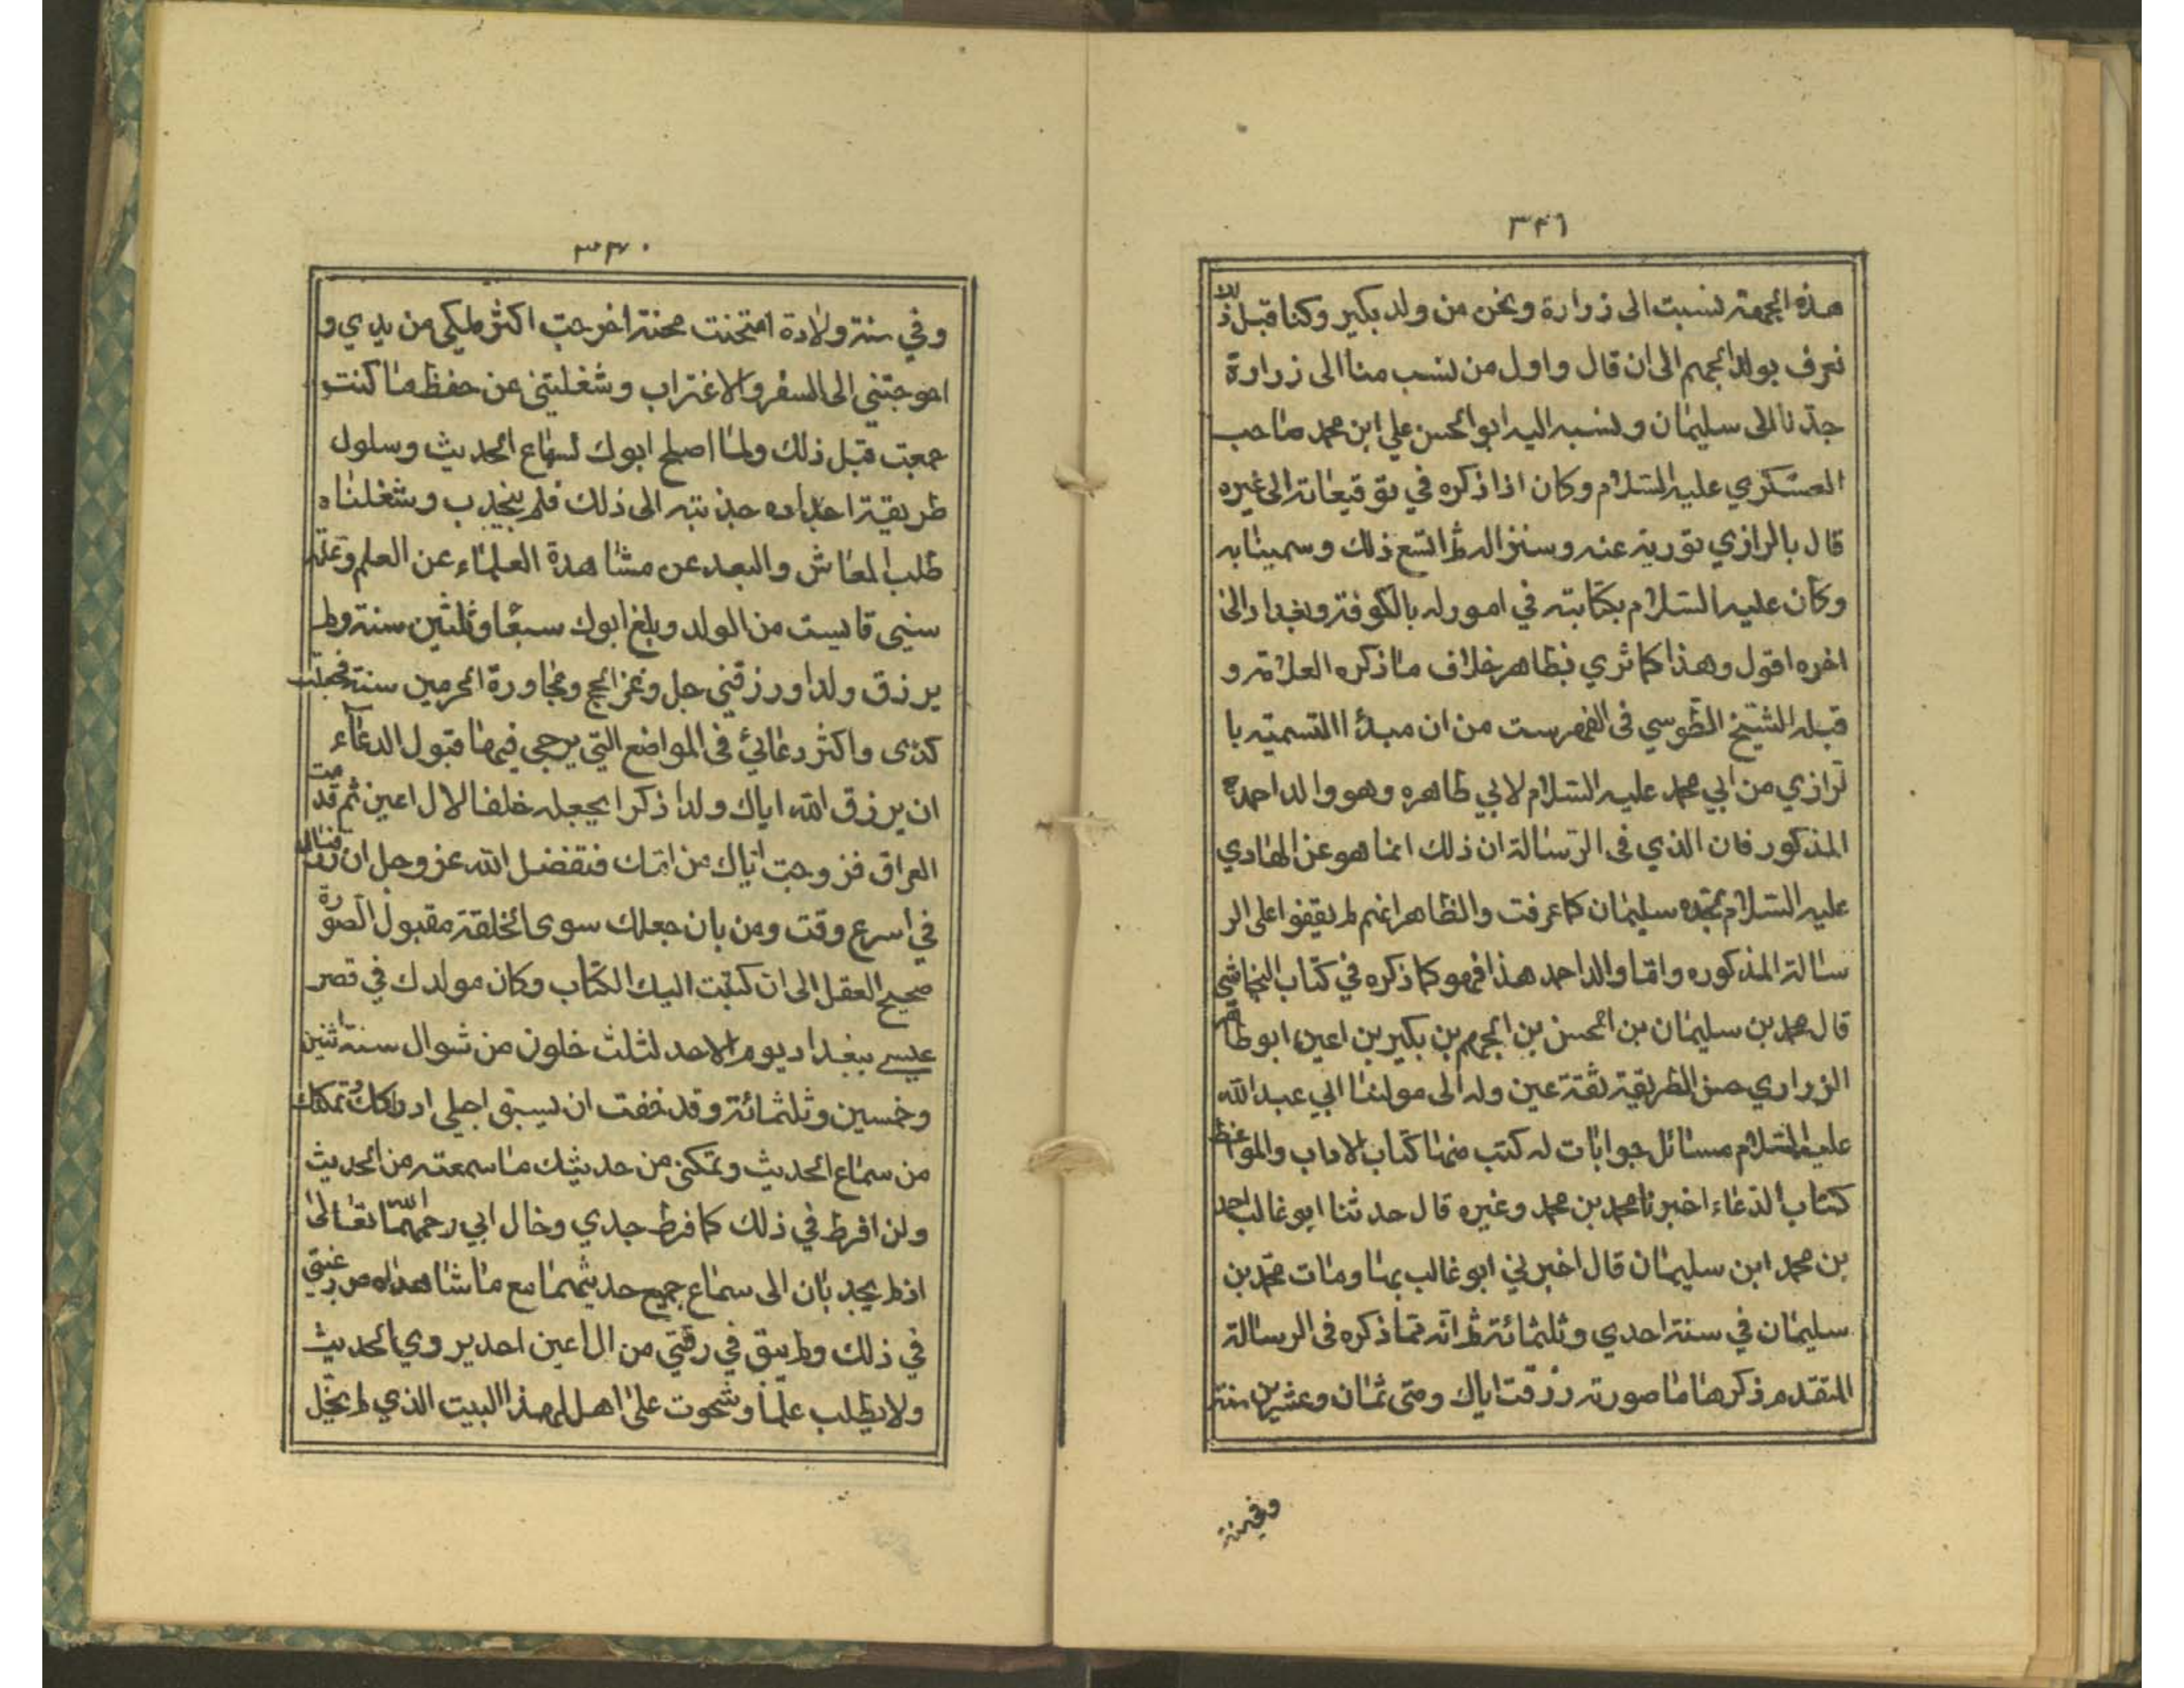 ٣٤٦
هذه الجهة نسبت الى زرارة ونحن من ولد بكير وكنا قبل ذلك
نعرف بولد الجهم الى ان قال واول من نسب منا الى زرارة
جدنا الى سليمان ونسبه اليه ابو الحسن علي ابن محمد صاحب
العسكري عليه السلام وكان اذا ذكره في توقيعاته الى غيره
قال بالرازي تورية عنه وسنزاله ثم اتسع ذلك وسمينا به
وكان عليه السلام بكاتبته في امور له بالكوفة وبغداد الى
اخره اقول وهذا كما ترى بظاهر خلاف ما ذكره العلامة و
قبله الشيخ الطوسي فى الفهرست من ان مبدأ االتسميته با
لرازي من ابي محمد عليه السلام لابي طاهره وهو والد احمد
المذكور فان الذي فى الرسالة ان ذلك انما هو عن الهادي
عليه السلام بجده سليمان كما عرفت والظاهر انهم لم يقفوا على الر
سالة المذكوره واما والد احمد هذا فهو كما ذكره في كتاب النجاشي
قال محمد بن سليمان بن الحسن بن الجهم بن بكير بن اعين ابو طاهر
الزراري حسن الطريقة ثقة عين وله الى مولانا ابي عبد الله
عليه السلام مسائل جوابات له كتب منها كتاب الاداب والمواعظ
كتاب الدعاء اخبرنا محمد بن محمد وغيره قال حدثنا ابو غالب احمد
بن محمد ابن سليمان قال اخبرني ابو غالب بها ومات محمد بن
سليمان في سنة احدي وثلثمائة ثم انه مما ذكره فى الرسالة
المتقدم ذكرها ما صورته رزقت اباك ومتى ثمان وعشرين سنة
وفي سنة
٣٤٧
وفي سنة ولادة امتحنت محنة اخرجت اكثر ملكي من يدي و
احوجتني الى السفر والاغتراب وشغلتني عن حفظ ما كنت
جمعت قبل ذلك ولما اصلح ابوك لسماع الحديث وسلول
طريقة اجداده جذبته الى ذلك فلم ينجذب وشغلناه
طلب المعاش والبعد عن مشاهدة العلماء عن العلم وعلت
سني فايست من الولد وبلغ ابوك سبعا وثلثين سنة ولم
يرزق ولدا ورزقني جل وعز الحج ومجاورة الحرمين سنة فجعلت
كدى واكثر دعائي فى المواضع التي يرجى فيها قبول الدعاء
ان يرزق الله اباك ولدا ذكرا يجعله خلفا لال اعين ثم قدمت
العراق فزوجت اباك من امك فتفضل الله عز وجل ان رزقناك
في اسرع وقت ومن بان جعلك سوى الخلقة مقبول الصورة
صحيح العقل الى ان كتبت اليك الكتاب وكان مولدك في قصر
عيسى ببغداد يوم الاحد لثلث خلون من شوال سنة اثنين
وخمسين وثلثمائة وقد خفت ان يسبق اجلي ادراكك وتمكنك
من سماع الحديث وتمكنى من حديثك ما سمعته من الحديث
ولن افرط في ذلك كما فرط جدي وخال ابي رحمهما الله تعالى
اذ لم يجدبان الى سماع جميع حديثهما مع ما شاهداه من رغبتي
في ذلك ولم يبق في رقتي من ال اعين احد يروي الحديث
ولا يطلب علما وشحوت على اهل لهذا البيت الذي لم يخل